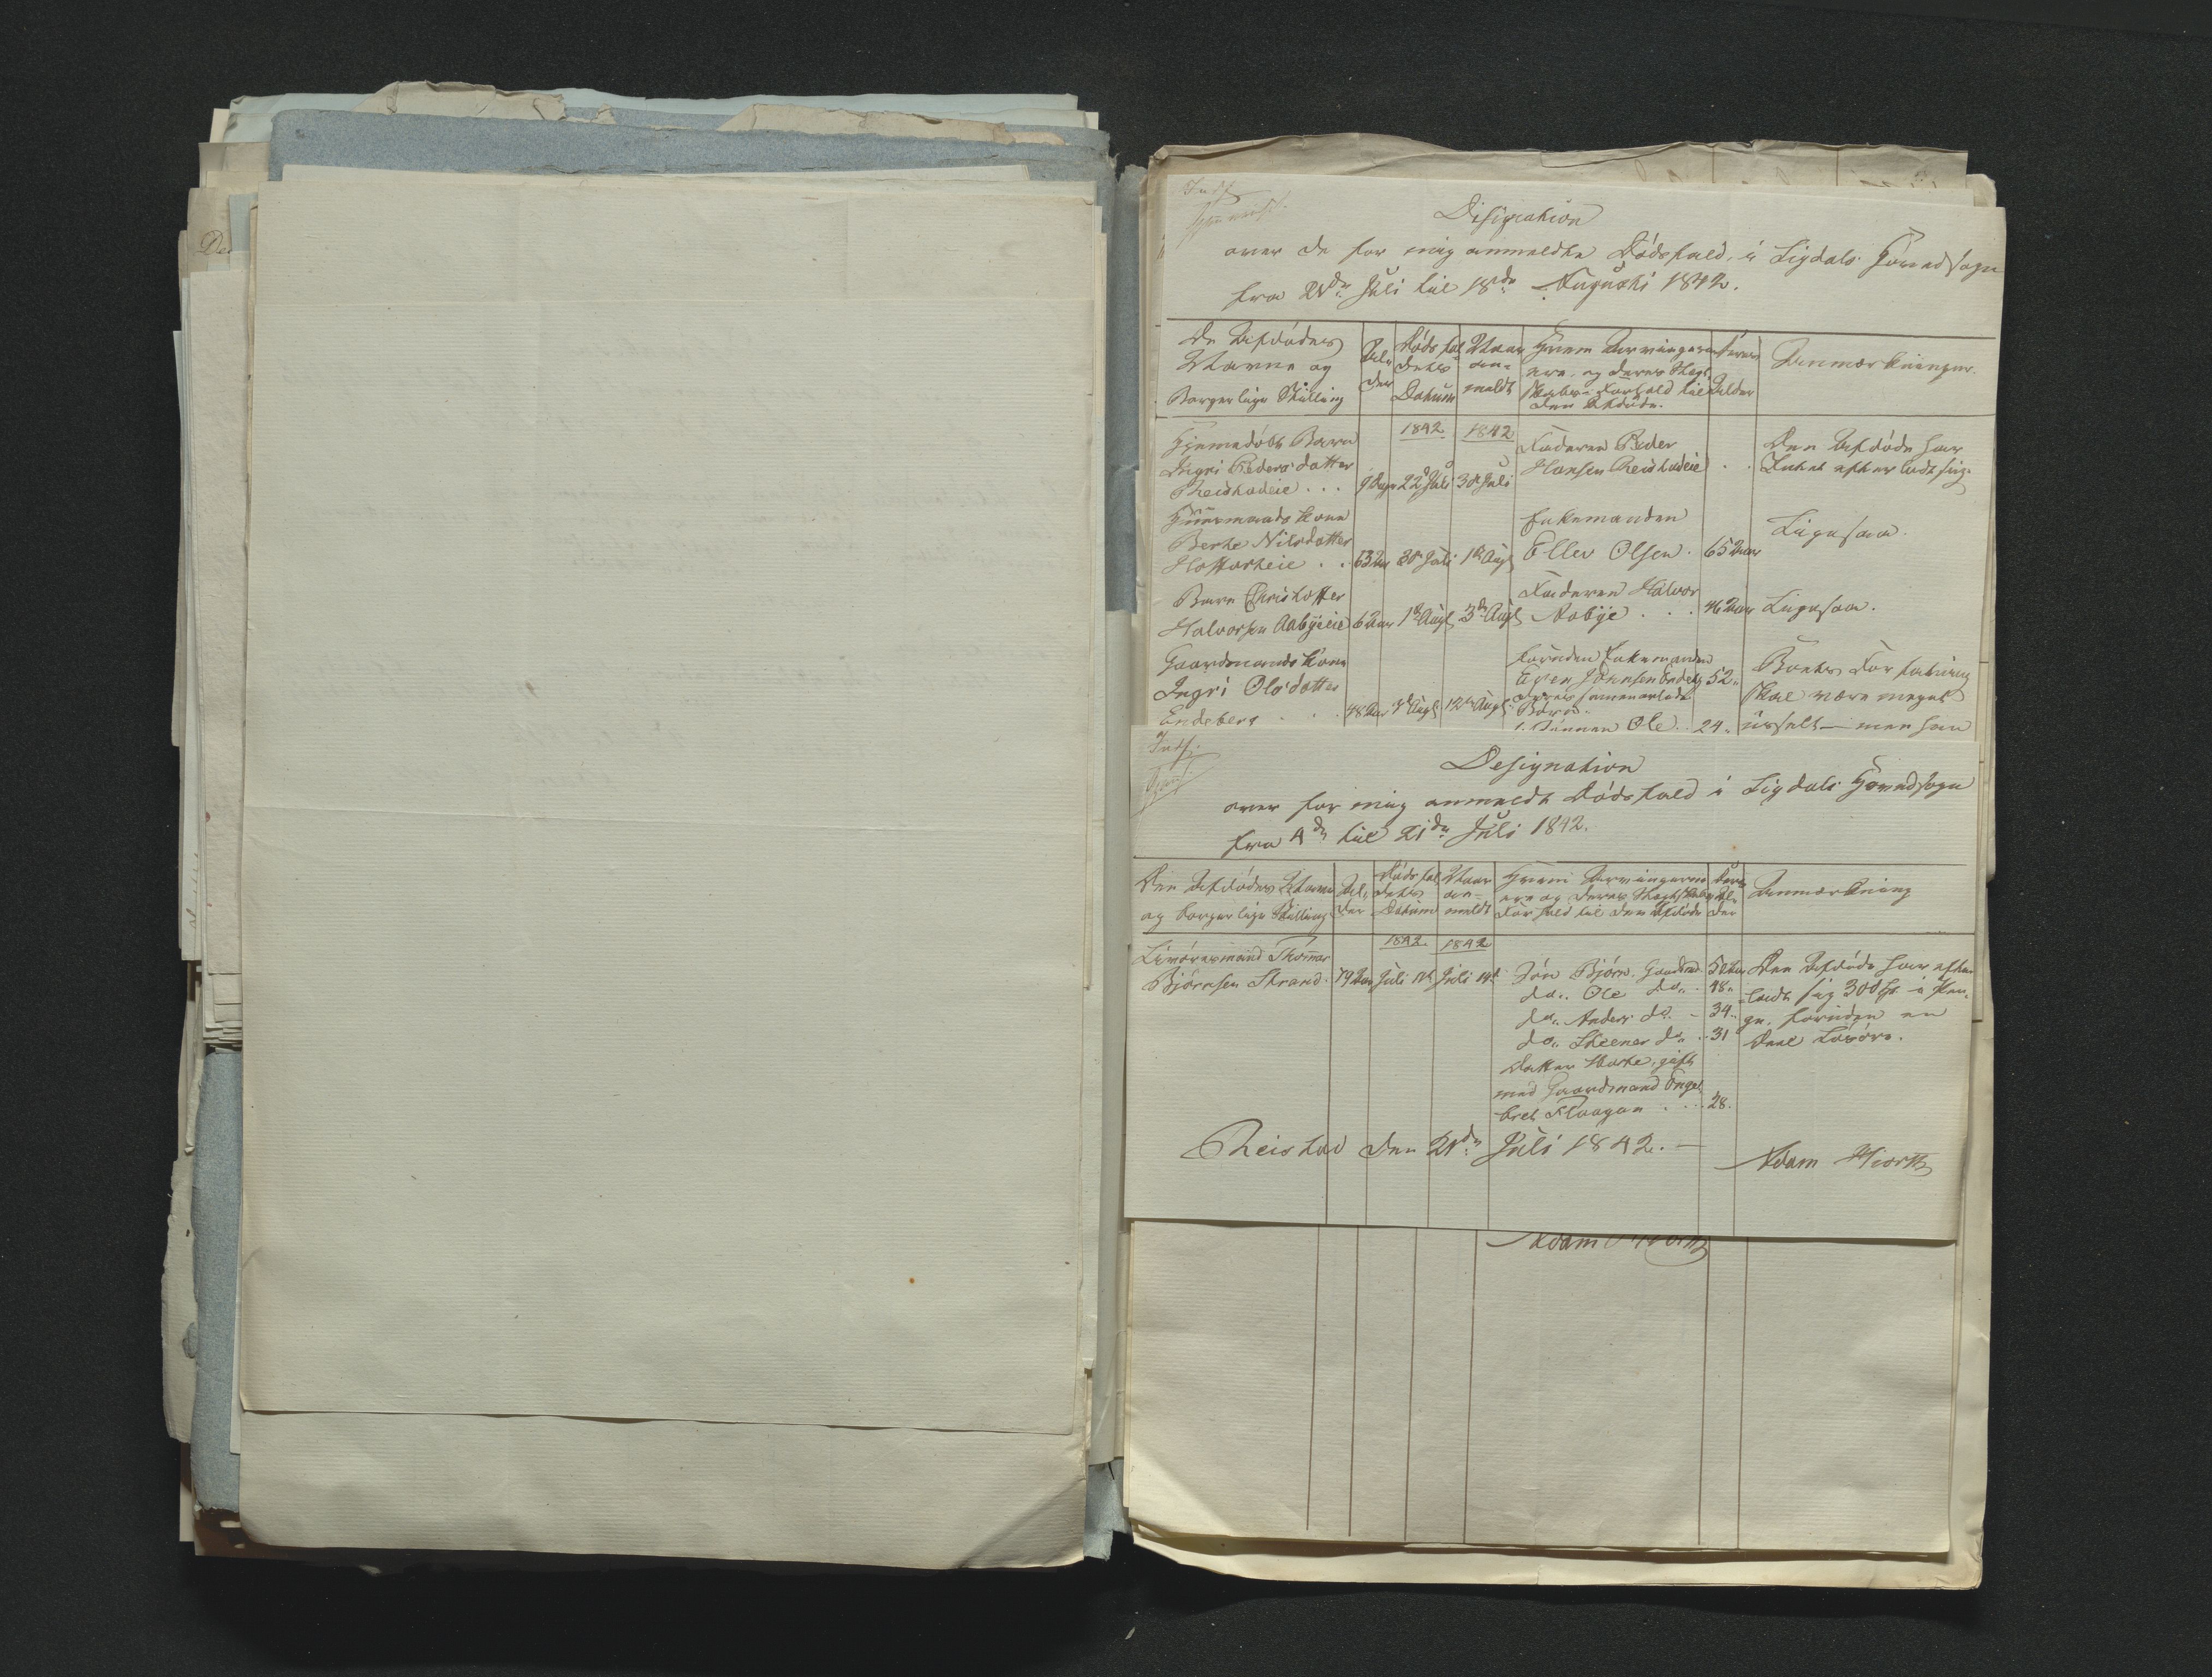 De
Indf.
Designation
over de for mig anmeldte Dødsfald, i Sigdals Hovedsogn
fra 21de Juli til 18de Augusti 1842.
De Afdødes
Navne og
Borgerlige Stilling
Al-
der
Dødsfal
dets
Datum
Naar
an-
meldt
Hvem Arvingerne
ere, og deres Slægt-
skabs-Forhold til
den Afdøde.
deres
Alder
Anmærkninger.
1842 1842
Hjemedøbt Barn
Ingri Pedersdatter
Reistadeie . . . 9 Dage 22de Juli 30te Juli
Faderen Peder
Hansen Reistadeie . .
Den Afdøde har
Intet efterladt sig.
Huusmands Kone
Berte Nilsdatter
63 Aar 30te Juli 1ste Augt
Enkemanden
Ellev Olsen . 65 Aar
Ligesaa.
Barn Christoffer
Halvorsen Aabyeeie 6 Aar 1ste Augt 3de Augt
Faderen Halvor
Aabye . . . 46 Aar
Ligesaa.
Gaardmands Kone
Ingri Olsdatter
Endeberg . . . 48 Aar 12te Augt
foruden Enkemanden
Even Johnsen Endebg 52 "
deres sammenavlede
Børn.
1. Sønnen Ole . . 24 "
Boets Forfatning
skal være meget
usselt — men han
Indf.
Designation
over for mig anmeldt Dødsfald i Sigdals Hovedsogn
fra 4de til 21de Juli 1842.
Den Afdødes Navn
og borgerlige Stilling
Al-
der
Dødsfal
dets
Datum
Naar
an-
meldt
Hvem Arvingerne
ere og deres Slægtskabs
Forhold til den Afdøde
deres
Al-
der
Anmærkning
1842 1842
Livøresmand Thomas
Bjørnsen Strand . 79 Aar Juli Juli 14de
Søn Bjørn . Gaardmd 50 Aar
do " Ole do " . 48 "
do " Anders do . - 34 "
do " Steener do . . 31
Datter Marte, gift
med Gaardmand Engel
bret Flaagan . . . 28.
Den Afdøde har efter
ladt sig 300 i Pen-
ge, foruden en
Deel Løsøre.
Reistad den 21de Juli 1842. —
Adam Hiorth
Adam Hiorth